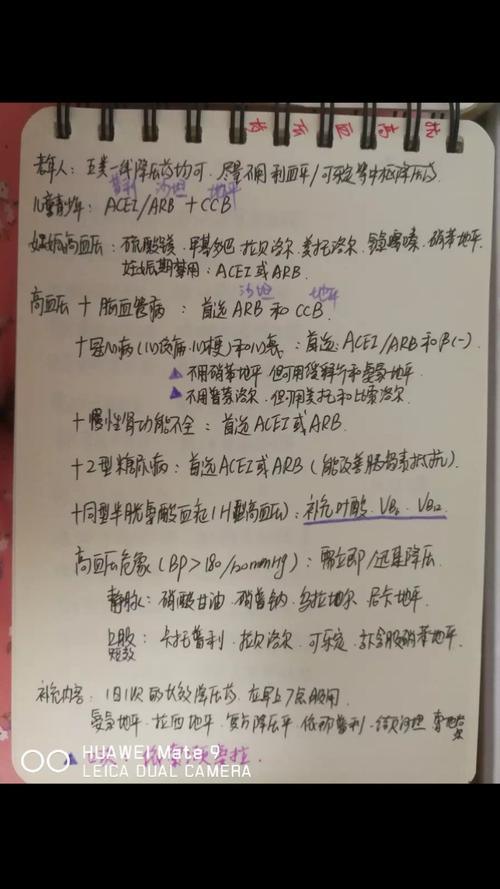 抗高血压药
老年人：五类一线降压药均可．尽量不用利血平/可乐定等中枢降压药
普利 沙坦 地平
儿童青少年：ACEI/ARB + CCB
妊娠高血压：硫酸镁．甲基多巴 拉贝洛尔 美托洛尔．氢嗪．硝苯地平
妊娠期禁用：ACEI或ARB．
沙坦 地平
高血压 + 脑血管病：首选 ARB 和 CCB．
+冠心病(心绞痛.心梗)和心衰：首选：ACEI/ARB和β(-)．
▲ 不用硝苯地平 但可用缓释片和氨氯地平
▲ 不用普萘洛尔．但可用美托和比索洛尔
+慢性肾功能不全：首选ACEI或ARB．
+2型糖尿病：首选ACEI或ARB（能改善胰岛素抵抗）．
+同型半胱氨酸血症（H型高血压）：补充叶酸．VB₆．VB₁₂
高血压危象（BP>180/120mmHg）：需立即/迅速降压
静脉：硝酸甘油．硝普钠．乌拉地尔．尼卡地平．
口服
短效：卡托普利．拉贝洛尔．可乐定．
补充内容：1日1次的长效降压药．在早上7点服用
氨氯地平．拉西地平．复方降压平．依那普利．缬沙坦
HUAWEI Mate 9
LEICA DUAL CAMERA